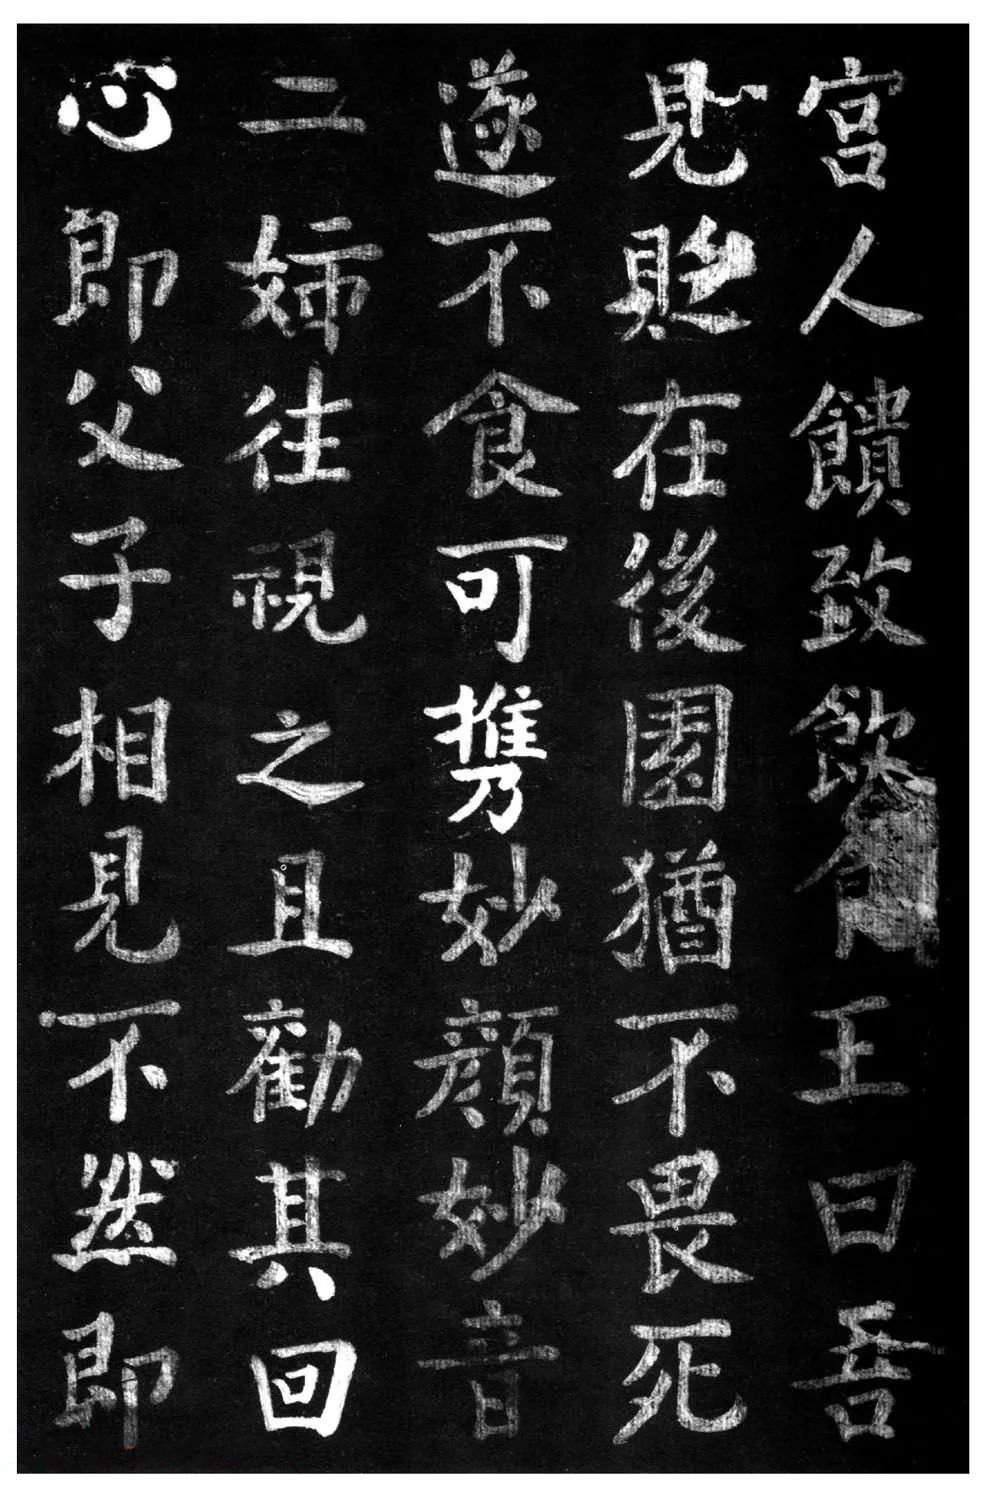 宮人饋致飲食王曰吾
見貶在後園猶不畏死
遂不食可攜妙顏妙音
二姊往視之且勸其回
心即父子相見不然即